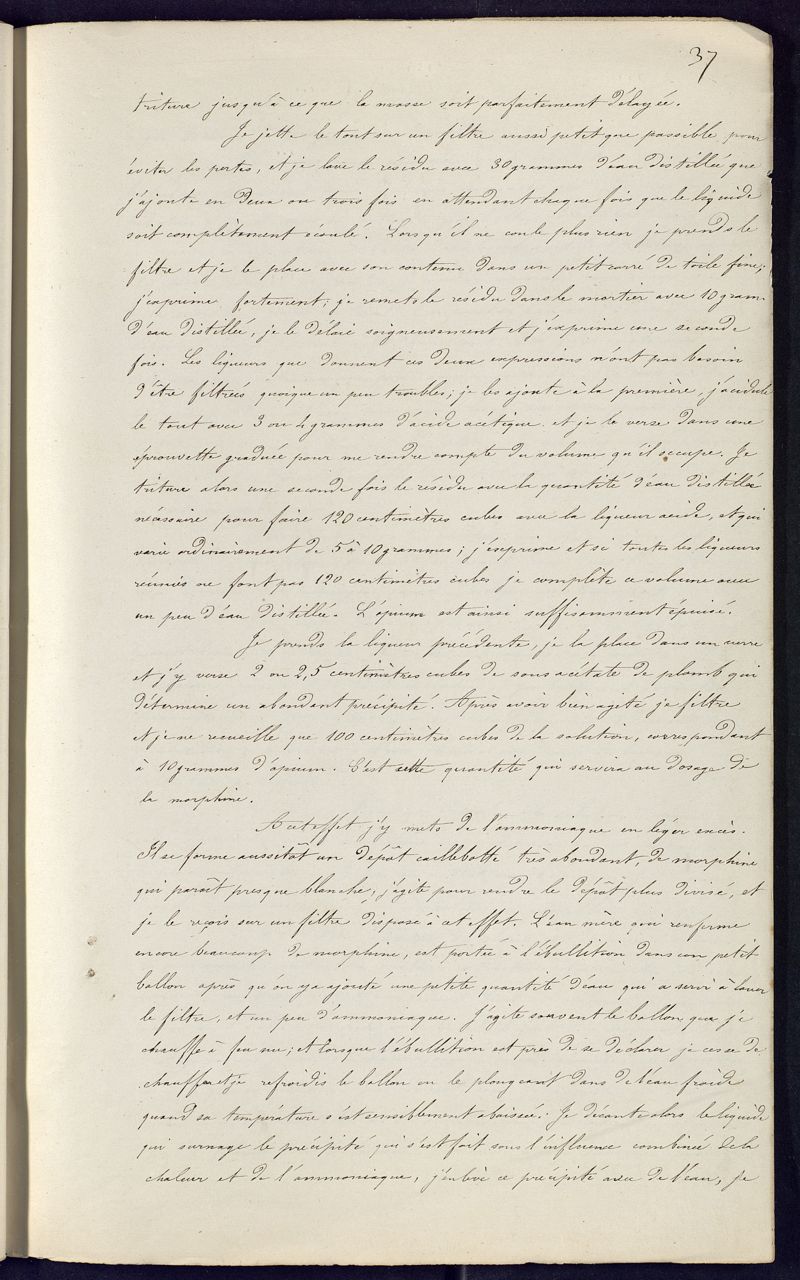 37
triture jusqu'à ce que la masse soit parfaitement délayée.
Je jette le tout sur un filtre aussi petit que possible, pour
éviter les pertes, et je lave le résidu avec 30 grammes d'eau distillée que
j'ajoute en deux ou trois fois en attendant chaque fois que le liquide
soit complètement écoulé. Lorsqu'il ne coule plus rien je prends le
filtre et je le place avec son contenu dans un petit carré de toile fine;
j'exprime fortement; je remets le résidu dans le mortier avec 10 gram.
d'eau distillée, je le délaie soigneusement et j'exprime une seconde
fois. Les liqueurs que donnent ces deux expressions n'ont pas besoin
d'être filtrées quoique un peu troubles; je les ajoute à la première, j'acidule
le tout avec 3 ou 4 grammes d'acide acétique et je le verse dans une
éprouvette graduée pour me rendre compte du volume qu'il occupe. Je
triture alors une seconde fois le résidu avec la quantité d'eau distillée
nécessaire pour faire 120 centimètres cubes avec la liqueur acide, et qui
varie ordinairement de 5 à 10 grammes; j'exprime et si toutes les liqueurs
réunies ne font pas 120 centimètres cubes je complète ce volume avec
un peu d'eau distillée. L'opium est ainsi suffisamment épuisé.
Je prends la liqueur précédente, je la place dans un verre
et j'y verse 2 ou 2,5 centimètres cubes de sous acétate de plomb qui
détermine un abondant précipité. Après avoir bien agité je filtre
et je ne recueille que 100 centimètres cubes de la solution, correspondant
à 10 grammes d'opium. C'est cette quantité qui servira au dosage de
la morphine.
A cet effet j'y mets de l'ammoniaque en léger excès.
Il se forme aussitôt un dépôt caillebotté très abondant, de morphine
qui paraît presque blanche; j'agite pour rendre le dépôt plus divisé, et
je le reçois sur un filtre disposé à cet effet. L'eau mère qui renferme
encore beaucoup de morphine, est portée à l'ébullition dans un petit
ballon après qu'on y a ajouté une petite quantité d'eau qui a servi à laver
le filtre, et un peu d'ammoniaque. J'agite souvent le ballon que je
chauffe à feu nu; et lorsque l'ébullition est près de se déclarer je cesse de
chauffer et je refroidis le ballon en le plongeant dans de l'eau froide
quand sa température s'est sensiblement abaissée. Je décante alors le liquide
qui surnage le précipité qui s'est fait sous l'influence combinée de la
chaleur et de l'ammoniaque, j'enlève ce précipité avec de l'eau, je